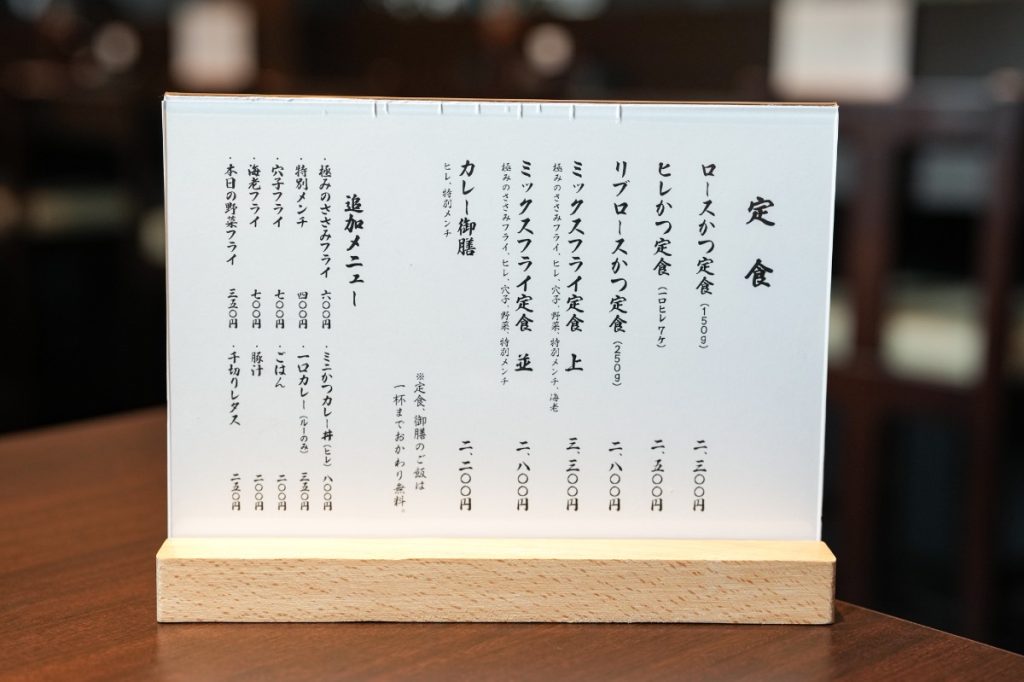 定食
ロースかつ定食(150g) 二、三〇〇円
ヒレかつ定食(一口ヒレ7ケ) 二、五〇〇円
リブロースかつ定食(250g) 二、八〇〇円
ミックスフライ定食 上 三、三〇〇円
極みのささみフライ、ヒレ、穴子、野菜、特別メンチ、海老
ミックスフライ定食 並 二、八〇〇円
極みのささみフライ、ヒレ、穴子、野菜、特別メンチ
カレー御膳 二、二〇〇円
ヒレ、特別メンチ
※定食、御膳のご飯は
一杯までおかわり無料。
追加メニュー
・極みのささみフライ 六〇〇円
・特別メンチ 四〇〇円
・穴子フライ 七〇〇円
・海老フライ 七〇〇円
・本日の野菜フライ 三五〇円
・ミニかつカレー丼(ヒレ) 八〇〇円
・一口カレー(ルーのみ) 三五〇円
・ごはん 二〇〇円
・豚汁 二〇〇円
・千切りレタス 二五〇円